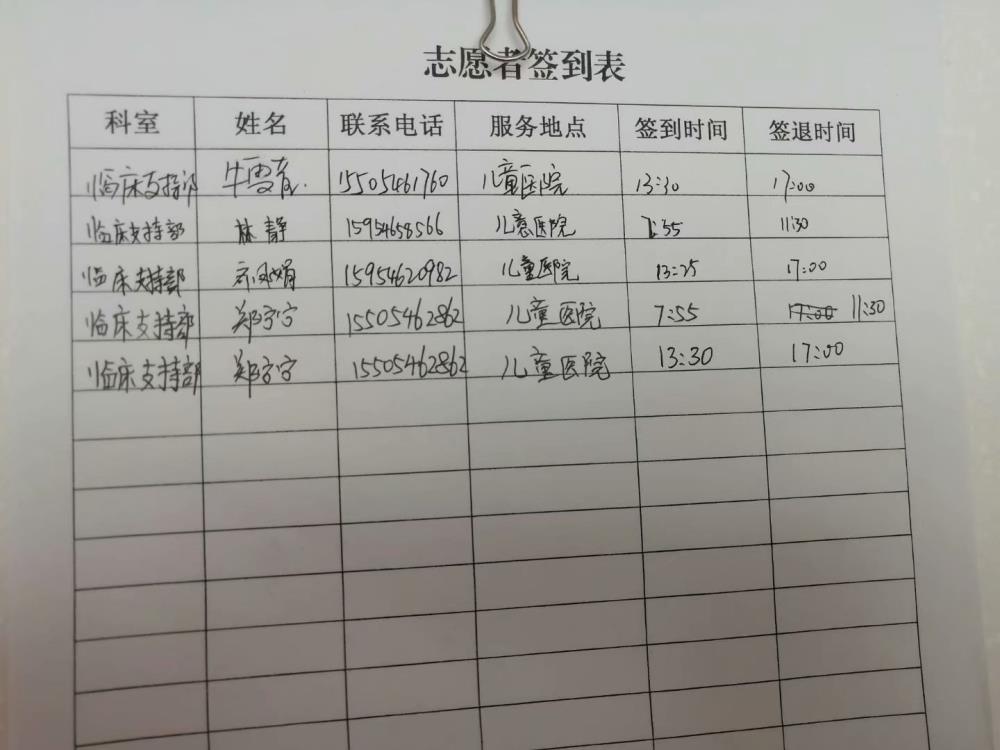 志愿者签到表
科室 姓名 联系电话 服务地点 签到时间 签退时间
临床支持部 牛雪 15505461760 儿童医院 13:30 17:00
临床支持部 林静 15954658566 儿童医院 7:55 11:30
临床支持部 15954620982 儿童医院 13:25 17:00
临床支持部 郑字字 15505462862 儿童医院 7:55 17:00 11:30
临床支持部 郑字字 15505462862 儿童医院 13:30 17:00